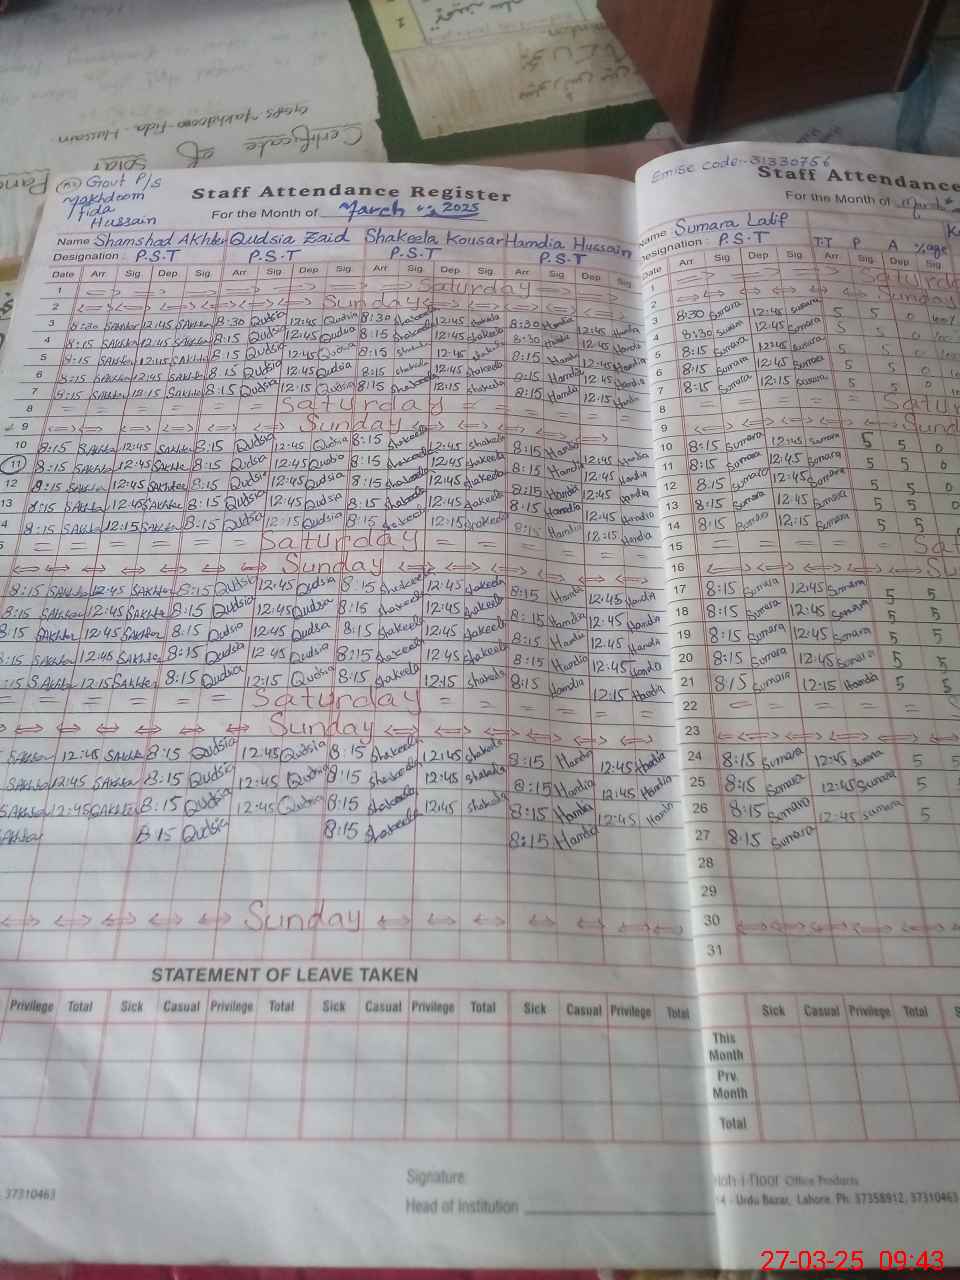 Certificate of
(w) Govt P/S
Makhdoom
fida
Hussain
Staff Attendance Register
For the Month of March 2025
Name Shamshad Akhter Qudsia Zaid Shakeela Kousar Hamdia Hussain
Designation : P.S.T P.S.T P.S.T P.S.T
Date Arr. Sig. Dep. Sig. Arr. Sig. Dep. Sig. Arr. Sig. Dep. Sig. Arr. Sig. Dep. Sig.
1 Saturday
2 Sunday
3 8:30 SAkhter 12:45 SAkhter 8:30 Qudsia 12:45 Qudsia 8:30 Shakeela 12:45 shakeela 8:30 Hamdia 12:45 Hamdia
4 8:15 SAkhter 12:45 SAkhter 8:15 Qudsia 12:45 Qudsia 8:15 shakeela 12:45 shakeela 8:30 Hamdia 12:45 Hamdia
5 8:15 SAkhter 12:45 SAkhter 8:15 Qudsia 12:45 Qudsia 8:15 shakeela 12:45 shakeela 8:15 Hamdia 12:45 Hamdia
6 8:15 SAkhter 12:45 SAkhter 8:15 Qudsia 12:45 Qudsia 8:15 shakeela 12:45 shakeela 8:15 Hamdia 12:45 Hamdia
7 8:15 SAkhter 12:15 SAkhter 8:15 Qudsia 12:15 Qudsia 8:15 shakeela 12:15 shakeela 8:15 Hamdia 12:15 Hamdia
8 = = = = = Saturday = = = = = =
9 Sunday
10 8:15 SAkhter 12:45 SAkhter 8:15 Qudsia 12:45 Qudsia 8:15 shakeela 12:45 shakeela 8:15 Hamdia 12:45 Hamdia
11 8:15 SAkhter 12:45 SAkhter 8:15 Qudsia 12:45 Qudsia 8:15 shakeela 12:45 shakeela 8:15 Hamdia 12:45 Hamdia
12 8:15 SAkhter 12:45 SAkhter 8:15 Qudsia 12:45 Qudsia 8:15 shakeela 12:45 shakeela 8:15 Hamdia 12:45 Hamdia
13 8:15 SAkhter 12:45 SAkhter 8:15 Qudsia 12:45 Qudsia 8:15 shakeela 12:45 shakeela 8:15 Hamdia 12:45 Hamdia
4 8:15 SAkhter 12:15 SAkhter 8:15 Qudsia 12:15 Qudsia 8:15 shakeela 12:15 shakeela 8:15 Hamdia 12:15 Hamdia
5 = = = = = Saturday = = = = =
Sunday
8:15 SAkhter 12:45 SAkhter 8:15 Qudsia 12:45 Qudsia 8:15 shakeela 12:45 shakeela 8:15 Hamdia 12:45 Hamdia
8:15 SAkhter 12:45 SAkhter 8:15 Qudsia 12:45 Qudsia 8:15 shakeela 12:45 shakeela 8:15 Hamdia 12:45 Hamdia
8:15 SAkhter 12:45 SAkhter 8:15 Qudsia 12:45 Qudsia 8:15 shakeela 12:45 shakeela 8:15 Hamdia 12:45 Hamdia
:15 SAkhter 12:45 SAkhter 8:15 Qudsia 12:45 Qudsia 8:15 shakeela 12:45 shakeela 8:15 Hamdia 12:45 Hamdia
:15 SAkhter 12:15 SAkhter 8:15 Qudsia 12:15 Qudsia 8:15 shakeela 12:15 shakeela 8:15 Hamdia 12:15 Hamdia
= = = = = Saturday = = = = =
Sunday
SAkhter 12:45 SAkhter 8:15 Qudsia 12:45 Qudsia 8:15 shakeela 12:45 shakeela 8:15 Hamdia 12:45 Hamdia
SAkhter 12:45 SAkhter 8:15 Qudsia 12:45 Qudsia 8:15 shakeela 12:45 shakeela 8:15 Hamdia 12:45 Hamdia
SAkhter 12:45 SAkhter 8:15 Qudsia 12:45 Qudsia 8:15 shakeela 12:45 shakeela 8:15 Hamdia 12:45 Hamdia
Akhter 8:15 Qudsia 8:15 shakeela 8:15 Hamdia
Sunday
STATEMENT OF LEAVE TAKEN
Privilege Total Sick Casual Privilege Total Sick Casual Privilege Total Sick Casual Privilege Total
Signature
Head of Institution
37310463
Emise code:-31330756
Staff Attendance
For the Month of March
Name Sumara Latif
Designation : P.S.T T.T P A %age
Date Arr. Sig. Dep. Sig.
1 Saturda
2 Sunday
3 8:30 Sumara 12:45 sumara 5 5 0
4 8:30 Sumara 12:45 Sumara 5 5 0
5 8:15 Sumara 12:45 Sumara 5 5 0
6 8:15 Sumara 12:45 Sumara 5 5 0
7 8:15 Sumara 12:15 Sumara 5 5 0
8 = = = = = Satur
9 Sund
10 8:15 Sumara 12:45 sumara 5 5 0
11 8:15 Sumara 12:45 Sumara 5 5 0
12 8:15 Sumara 12:45 Sumara 5 5 0
13 8:15 Sumara 12:45 Sumara 5 5 0
14 8:15 Sumara 12:15 Sumara 5 5
15 = = = = = Sat
16 Su
17 8:15 Sumara 12:45 Sumara 5 5
18 8:15 Sumara 12:45 Sumara 5 5
19 8:15 Sumara 12:45 Sumara 5 5
20 8:15 Sumara 12:45 Sumara 5 5
21 8:15 Sumara 12:15 Hamdia 5 5
22 = = = = =
23
24 8:15 Sumara 12:45 Sumara 5 5
25 8:15 Sumara 12:45 Sumara 5
26 8:15 Sumara 12:45 sumara 5
27 8:15 Sumara
28
29
30
31
Sick Casual Privilege Total
This
Month
Prv.
Month
Total
Koh-i-Noor Office Products
14 - Urdu Bazar, Lahore. Ph: 37358912, 37310463
27-03-25 09:43